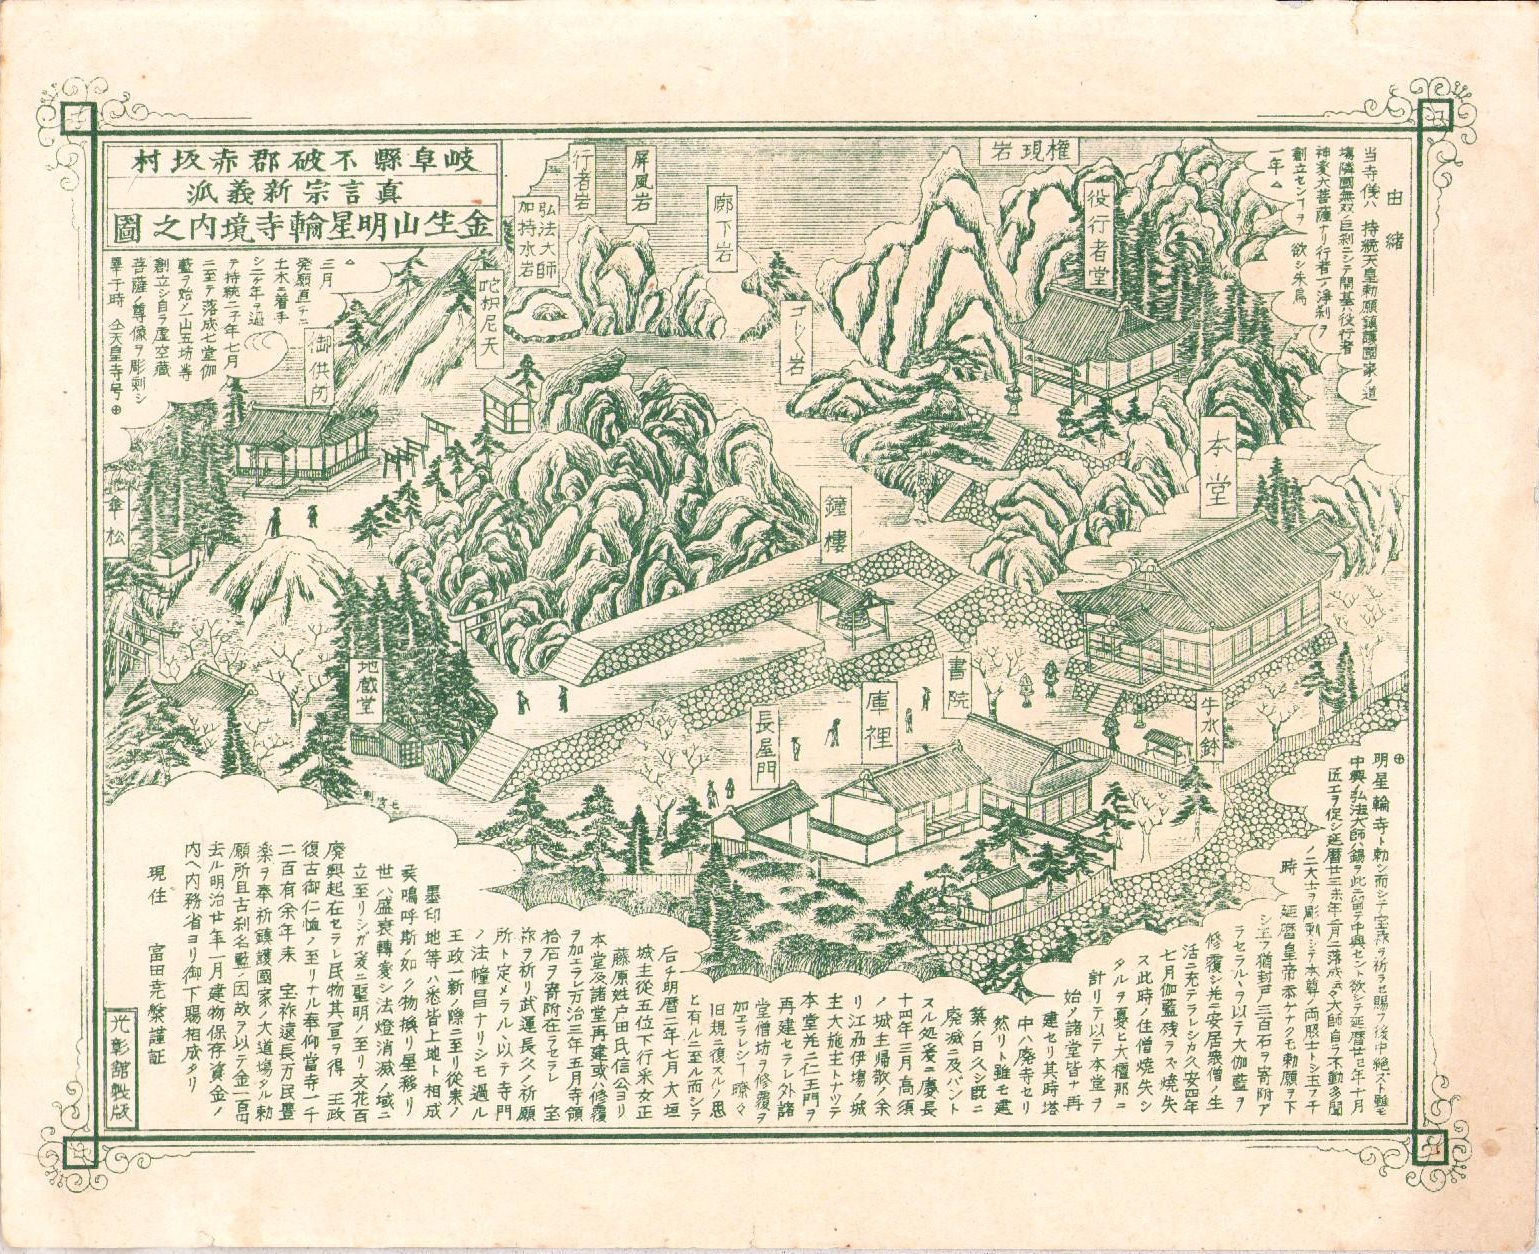 岐阜縣不破郡赤坂村
真言宗新義派
金生山明星輪寺境内之圖
由緒
当寺儀ハ 持統天皇勅願鎮護國家ノ道
塲隣國無双ノ巨刹ニシテ開基ハ役行者
神変大菩薩ナリ行者ノ浄刹ヲ
創立センヿヲ 欲シ朱鳥
一年△
△
三月
発願直チニ
土木ニ着手
シ二ケ年ヲ過
テ持統二子年七月
ニ至テ落成七堂伽
藍ヲ始ノ一山五坊等
創立シ自ラ虚空蔵
菩薩ノ尊像ヲ彫刻シ
畢于時 仝天皇寺号ヲ⊕
⊕
明星輪寺ト勅シ而シテ宝祚ヲ祈ラセ賜フ後中絶スト雖モ
中興弘法大師ハ錫ヲ此ニ留テ中興セント欲シテ延暦廿二年十月
匠工ヲ促シ延暦廿三未年二月ニ落成大師自ラ不動多聞
ノ二大士ヲ彫刻シテ本尊ノ両脇士トシ玉フ于
時
延暦皇帝忝ケナクモ勅願ヲ下
シ玉ヲ猶封戸二百石ヲ寄附ア
ラセラル、ヲ以テ大伽藍ヲ
修覆シ光ニ安居衆僧ノ生
活ニ充テラレシカ久安四年
七月伽藍残ラス焼失
ス此時ノ住僧焼失シ
タルヲ憂ヒ大檀那ニ
計リテ以テ本堂ヲ
始ノ諸堂皆ナ再
建セリ其時塔
中ハ廃寺セリ
然リト雖モ建
築ノ日久シ既ニ
廃滅ニ及バント
スル処爰ニ慶長
十四年三月高須
ノ城主帰敬ノ余
リ江刕伊塲ノ城
主大施主トナツテ
本堂光ニ仁王門ヲ
再建セラレ外諸
堂僧坊ヲ修覆ヲ
加エラレシ一瞭々
旧規ニ復スルノ思
ヒ有ルニ至ル而シテ
后チ明暦二年七月大垣
城主従五位下行釆女正
藤原姓戸田氏信公ヨリ
本堂及諸堂再建或ハ修覆
ヲ加エラレ万治三年五月寺領
拾石ヲ寄附在ラセラレ 宝
祚ヲ祈リ武運長久ノ祈願
所ト定メラル、以テ寺門
ノ法幢昌ナリシモ過ル
王政一新ノ際ニ至リ従来ノ
墨印地等ハ悉皆上地ト相成
矣嗚呼斯ノ如ク物換リ星移リ
世ハ盛衰轉変シ法燈消滅ノ域ニ
立至リシガ爰ニ聖明ノ至リ文花百
廃興起在セラレ民物其宜ヲ得 王政
復古御仁恤ノ至リナル奉仰當寺一千
二百有余年来 宝祚遠長万民豊
楽ヲ奉祈鎮護國家ノ大道場タル勅
願所且古刹名藍ノ因故ヲ以テ金一百円
去ル明治廿年一月建物保存資金ノ
内ヘ内務省ヨリ御下賜相成タリ
現住 富田尭槃謹証
行者岩
屏風岩
弘法大師
加持水岩
廊下岩
権現岩
役行者堂
𠮷枳尼天
御供所
ゴトく岩
本堂
傘松
鐘樓
地蔵堂
書院
庫裡
長屋門
牛水鉢
光彰舘製版